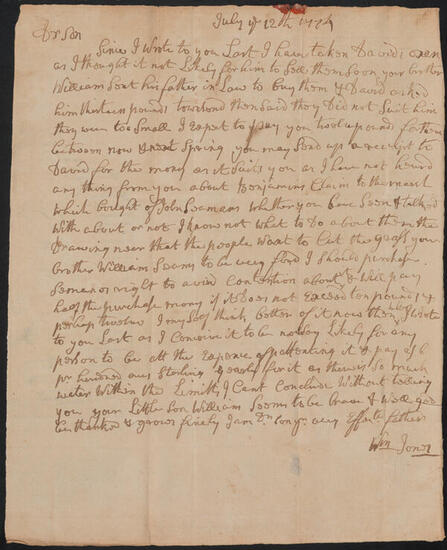 July ye 12th 1774
Dr Son
Since I Wrote to you Last I have taken Davids oxen
as I thought it not Likely for him to Sell them Soon your brother
William Sent his father in Law to buy them & David asked
him thirteen pounds to which he said they Did not Suit him
they were too Small I Expect to pay you twelve pounds for them
between now & next Spring you may Send up a receipt to
David for the money as it Suits you as I have not heard
any thing from you about Benjamins Claim to the marsh
which bought of John Seamans whether you have Seen & talked
with about or not I know not what to Do about them the
Drawing near that the people Want to Cut the Grass your
brother William Seems to be very fond I Should purchase
Seamans right to avoid Contention about it & will pay
half the purchase money if it Does not Exceed ten pounds
perhaps twelve I my Self think better of it now then I Wrote
to you Last as I Conceive it to be no way Likely for any
person to be att the Expence of pattenting it & pay of 6
pr hundred Sterling yearly for it as there is So much
water Within the Limitts I Cant Conclude Without telling
you your Little Son William Seems to be brave & well god
be thanked & grows finely I am Dr your very Affte father
Wm Jones